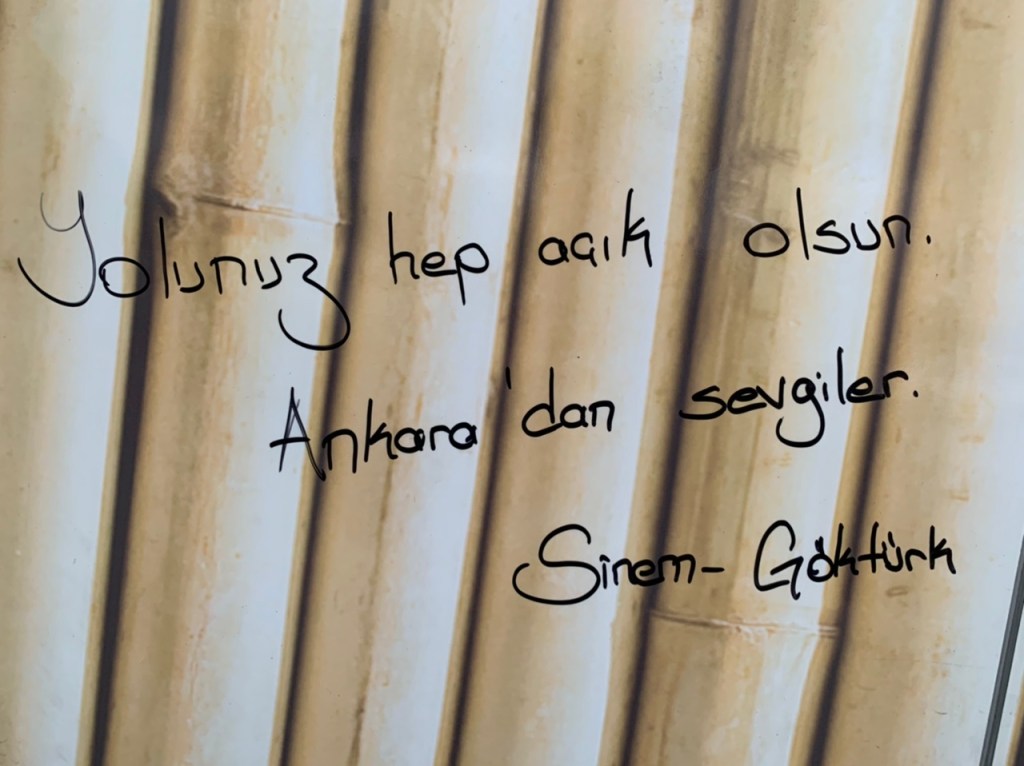 Yolunuz hep açık olsun.
Ankara'dan sevgiler.
Sinem-Göktürk